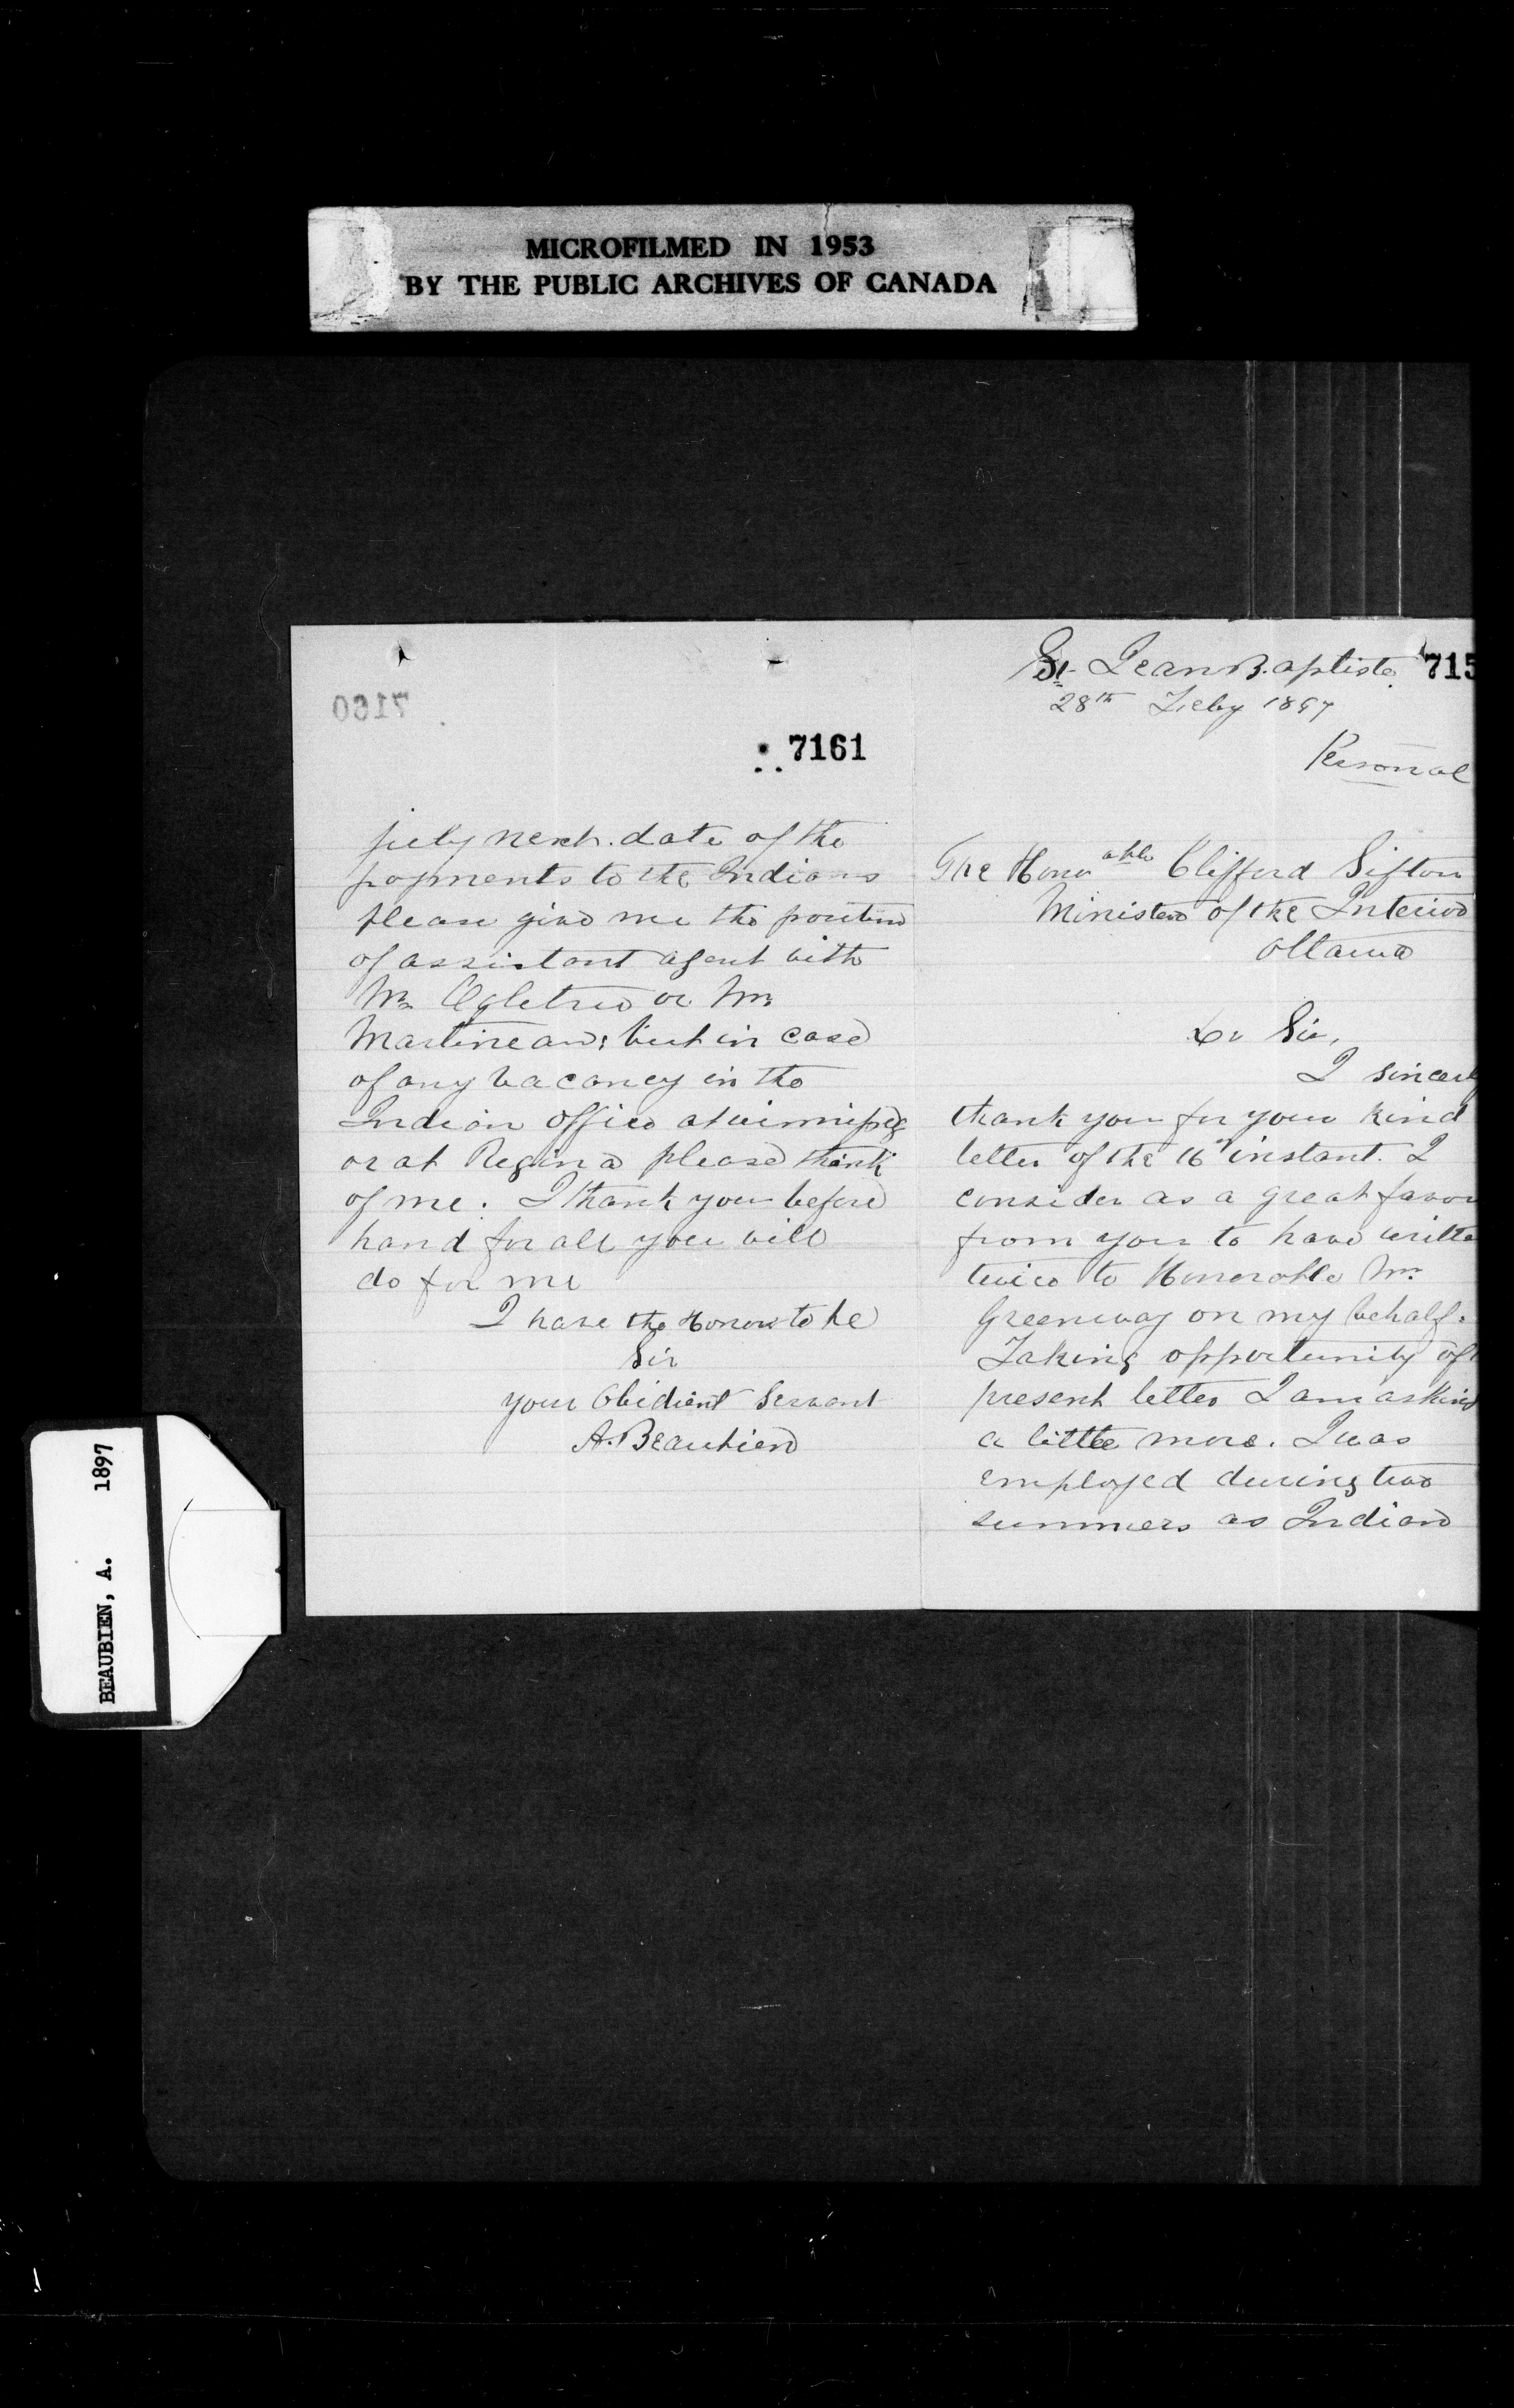 MICROFILMED IN 1953
BY THE PUBLIC ARCHIVES OF CANADA
BEAUBIEN, A. 1897
7160
7161
july next. date of the
payments to the Indians
please give me the position
of assistant agent with
Mr Ogletree or Mr
Martineau; but in case
of any vacancy in the
Indian office at winnipeg
or at Regina please think
of me. I thank you before
hand for all you will
do for me
I have the Honor to be
Sir
your Obidient Servant
A. Beaubien
St Jean Baptiste 715
28th Feby 1897
Personal
The Honorable Clifford Sifton
Minister of the Interior
Ottawa
Dr Sir,
I sincerly
thank you for your kind
letter of the 16th instant. I
consider as a great favor
from you to have writte
twice to Honorable Mr
Greenway on my behalf.
Taking opportunity of
present letter I am asking
a little more. I was
employed during two
summers as Indian